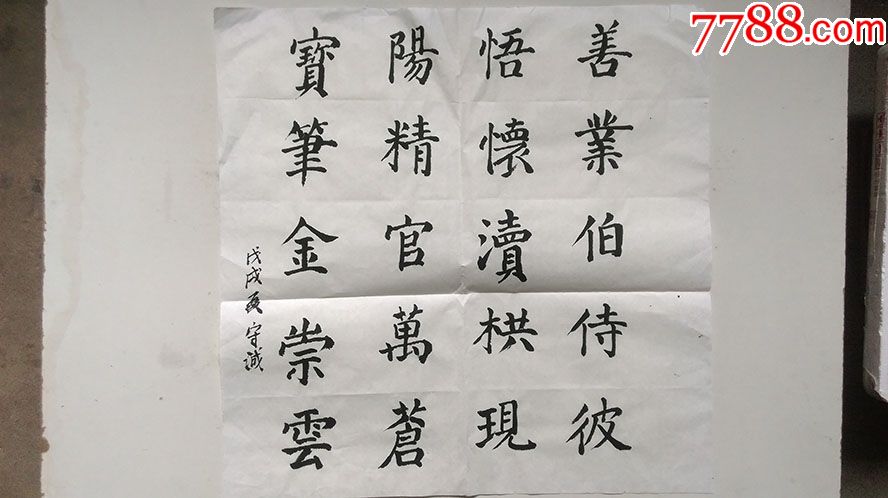 7788.com
善業伯侍彼
悟懷瀆栱現
陽精官萬蒼
寶筆金崇雲
戊戌夏守誠